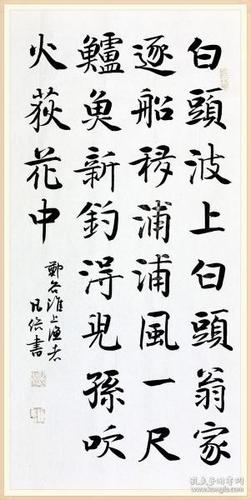 白頭波上白頭翁家
逐船移浦浦風一尺
鱸魚新釣得兒孫吹
火荻花中
鄭谷淮上漁者
書